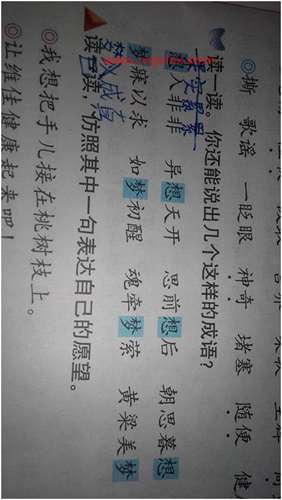 ◎撕 歌谣 一眨眼 神奇 堵塞 随便 健
读一读。你还能说出几个这样的成语?
想入非非 异想天开 思前想后 朝思暮想
梦寐以求 如梦初醒 魂牵梦萦 黄粱美梦
成真
读一读,仿照其中一句表达自己的愿望。
◎我想把手儿接在桃树枝上。
◎让维佳健康起来吧!